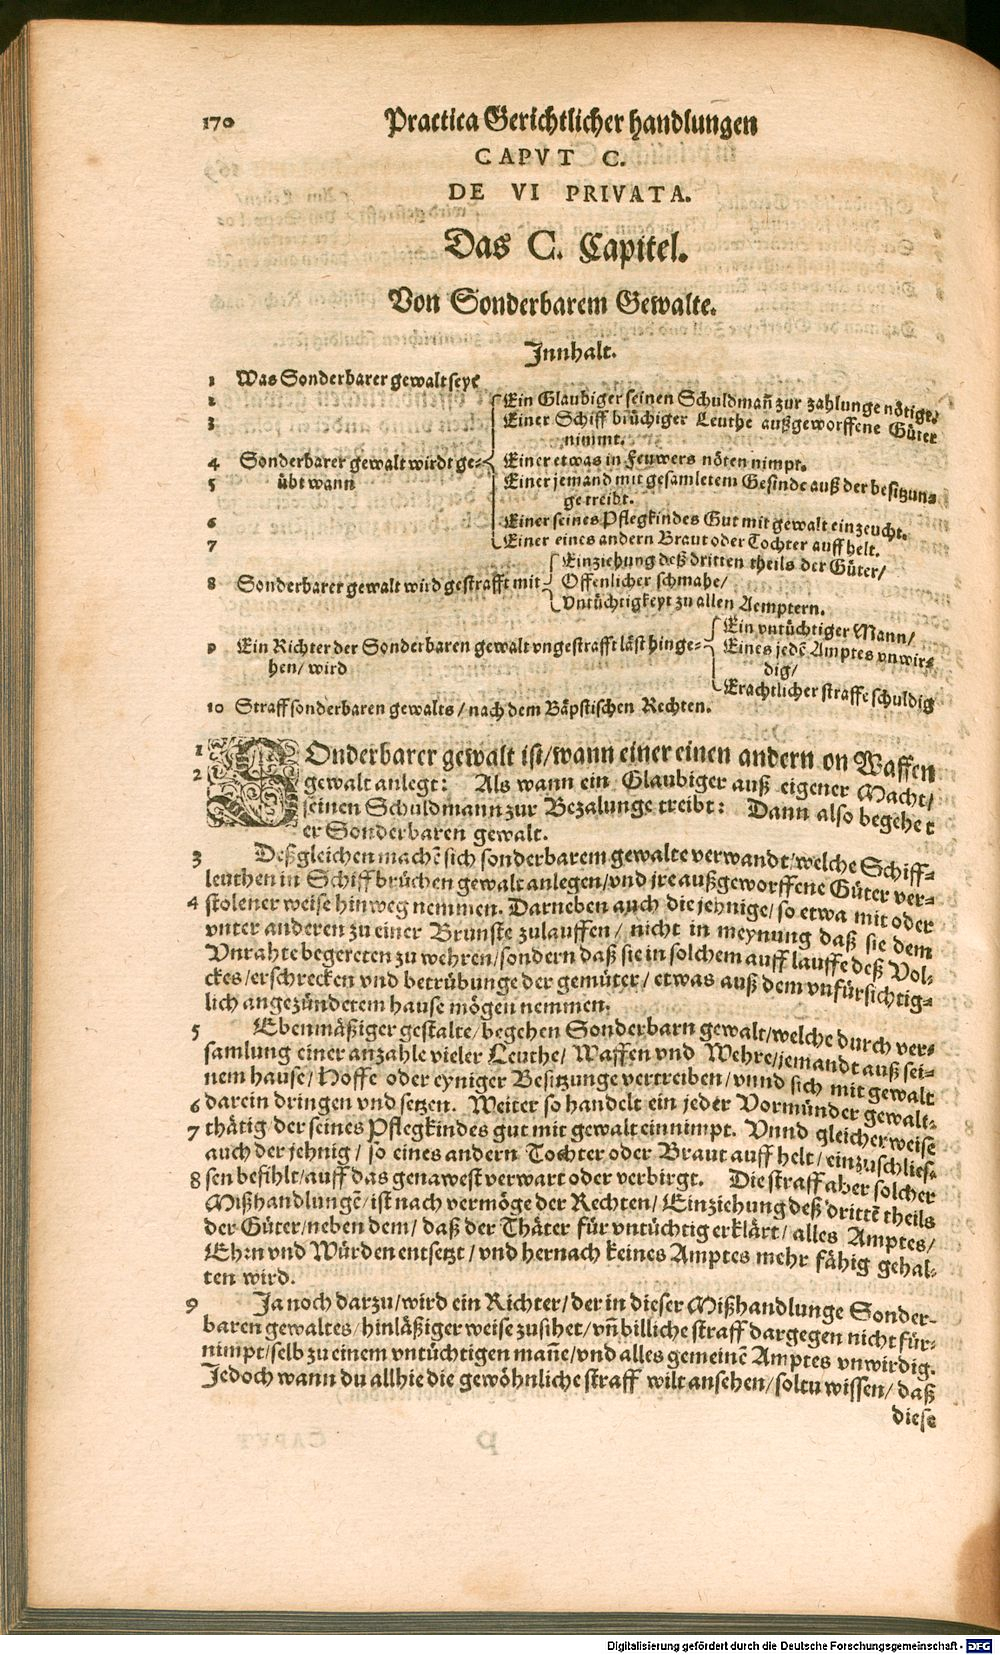 170 Practica Gerichtlicher handlungen
CAPVT C.
DE VI PRIVATA.
Das C. Capitel.
Von Sonderbarem Gewalte.
Innhalt.
1 Was Sonderbarer gewalt seye
2 Ein Glaubiger seinen Schuldmañ zur zahlunge nötiget.
3 Einer Schiff brüchiger Leuthe außgeworffene Güter
nimmt.
4 Sonderbarer gewalt wirdt ge- Einer etwas in Feuwers nöten nimpt.
5 übt wann Einer jemand mit gesamletem Gesinde auß der besitzun-
ge treibt.
6 Einer seines Pflegkindes Gut mit gewalt einzeucht.
7 Einer eines andern Braut oder Tochter auff helt.
Einziehung deß dritten theils der Güter/
8 Sonderbarer gewalt wird gestrafft mit Offenlicher schmahe/
Vntüchtigkeyt zu allen Aemptern.
Ein vntüchtiger Mann/
9 Ein Richter der Sonderbaren gewalt vngestrafft läst hinge- Eines jedē Amptes vnwir-
hen/ wird dig/
Erachtlicher straffe schuldig
10 Straff sonderbaren gewalts/ nach dem Bäpstischen Rechten.
1 SOnderbarer gewalt ist/ wann einer einen andern on Waffen
2 gewalt anlegt: Als wann ein Glaubiger auß eigener Macht/
seinen Schuldmann zur Bezalunge treibt: Dann also begehet
er Sonderbaren gewalt.
3 Deßgleichen machē sich sonderbarem gewalte verwandt/ welche Schiff-
leuthen in Schiffbrüchen gewalt anlegen/ vnd jre außgeworffene Güter ver-
4 stolener weise hinweg nemmen. Darneben auch die jehnige/ so etwa mit oder
vnter anderen zu einer Brunste zulauffen/ nicht in meynung daß sie dem
Vnrahte begereten zu wehren/ sondern daß sie in solchem auff lauffe deß Vol-
ckes/ erschrecken vnd betrübunge der gemüter/ etwas auß dem vnfürsichtig-
lich angezündetem hause mögen nemmen.
5 Ebenmäßiger gestalte/ begehen Sonderbarn gewalt/ welche durch ver-
samlung einer anzahle vieler Leuthe/ Waffen vnd Wehre/ jemandt auß sei-
nem hause/ Hoffe oder eyniger Besitzunge vertreiben/ vnnd sich mit gewalt
6 darein dringen vnd setzen. Weiter so handelt ein jeder Vormünder gewalt-
7 thätig der seines Pflegkindes gut mit gewalt einnimpt. Vnnd gleicher weise
auch der jehnig/ so eines andern Tochter oder Braut auff helt/ einzuschlies-
8 sen befihlt/ auff das genawest verwart oder verbirgt. Die straff aber solcher
Mißhandlungē/ ist nach vermöge der Rechten/ Einziehung deß drittē theils
der Güter/ neben dem/ daß der Thäter für vntüchtig erklärt/ alles Amptes/
Ehrn vnd Würden entsetzt/ vnd hernach keines Amptes mehr fähig gehal-
ten wird.
9 Ja noch darzu/ wird ein Richter/ der in dieser Mißhandlunge Sonder-
baren gewaltes/ hinläßiger weise zusihet/ vñ billiche straff dargegen nicht für-
nimpt/ selb zu einem vntüchtigen mañe/ vnd alles gemeinē Amptes vnwirdig.
Jedoch wann du allhie die gewöhnliche straff wilt ansehen/ soltu wissen/ daß
diese
Digitalisierung gefördert durch die Deutsche Forschungsgemeinschaft - DFG